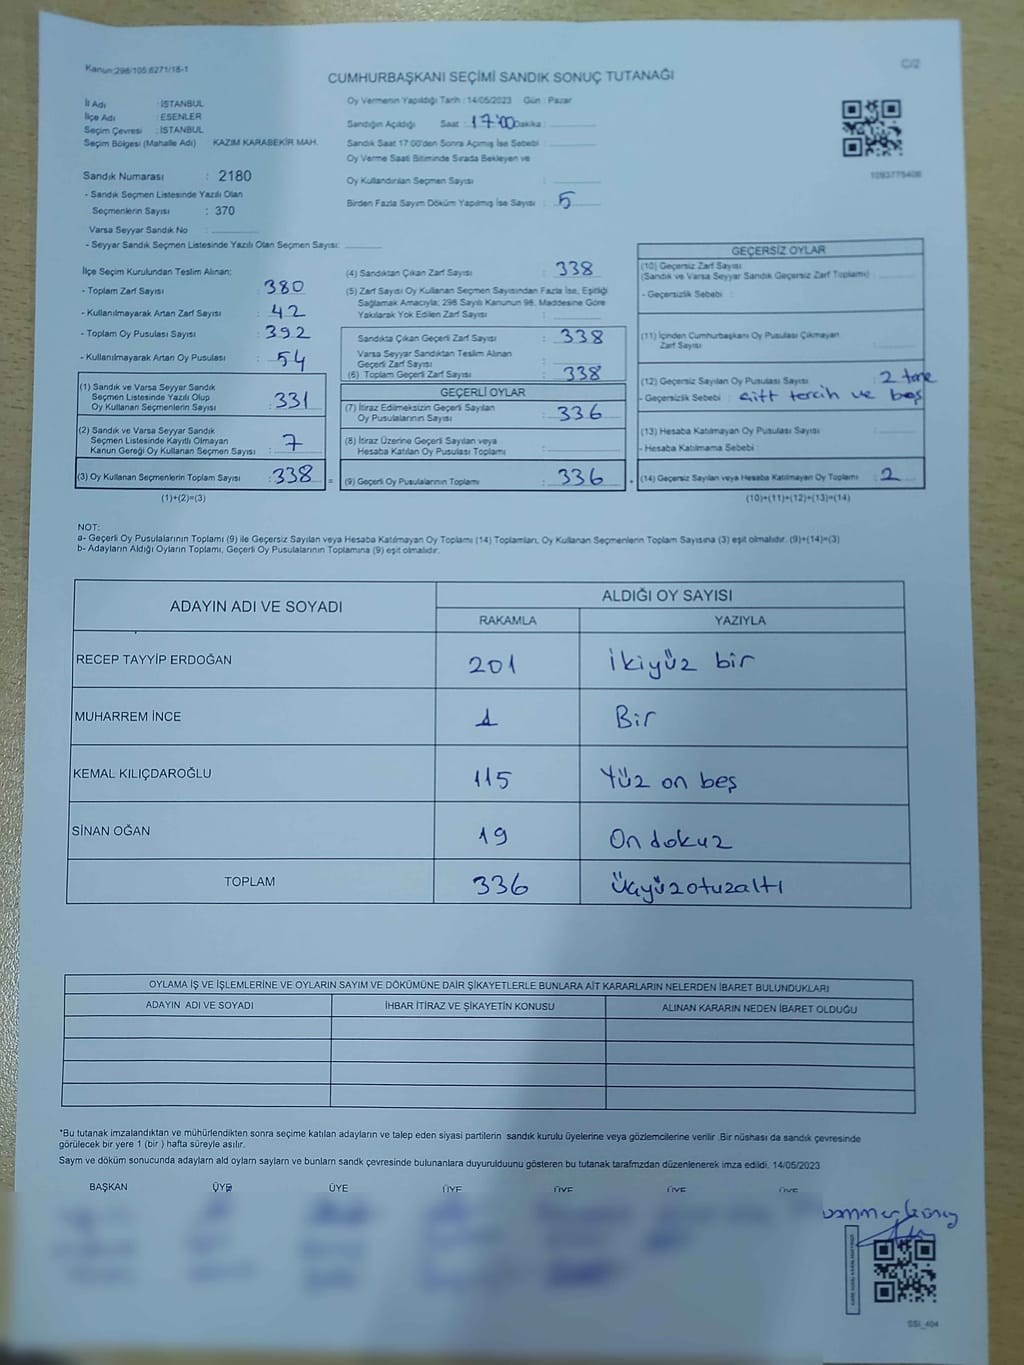 Kanun:298/105,6271/18-1
C/2
CUMHURBAŞKANI SEÇİMİ SANDIK SONUÇ TUTANAĞI
İl Adı : İSTANBUL
İlçe Adı : ESENLER
Seçim Çevresi : İSTANBUL
Seçim Bölgesi (Mahalle Adı) KAZIM KARABEKİR MAH.
Sandık Numarası : 2180
- Sandık Seçmen Listesinde Yazılı Olan
Seçmenlerin Sayısı : 370
Varsa Seyyar Sandık No :
- Seyyar Sandık Seçmen Listesinde Yazılı Olan Seçmen Sayısı:
Oy Vermenin Yapıldığı Tarih : 14/05/2023 Gün : Pazar
Sandığın Açıldığı Saat : 17:00 Dakika :
Sandık Saat 17:00'den Sonra Açımış İse Sebebi :
Oy Verme Saati Bitiminde Sırada Bekleyen ve
Oy Kullandırılan Seçmen Sayısı :
Birden Fazla Sayım Döküm Yapılmış İse Sayısı : 5
1093775408
İlçe Seçim Kurulundan Teslim Alınan;
- Toplam Zarf Sayısı : 380
- Kullanılmayarak Artan Zarf Sayısı : 42
- Toplam Oy Pusulası Sayısı : 392
- Kullanılmayarak Artan Oy Pusulası : 54
(1) Sandık ve Varsa Seyyar Sandık
Seçmen Listesinde Yazılı Olup
Oy Kullanan Seçmenlerin Sayısı : 331
(2) Sandık ve Varsa Seyyar Sandık
Seçmen Listesinde Kayıtlı Olmayan
Kanun Gereği Oy Kullanan Seçmen Sayısı : 7
(3) Oy Kullanan Seçmenlerin Toplam Sayısı : 338 =
(1)+(2)=(3)
(4) Sandıktan Çıkan Zarf Sayısı : 338
(5) Zarf Sayısı Oy Kullanan Seçmen Sayısından Fazla İse, Eşitliği
Sağlamak Amacıyla; 298 Sayılı Kanunun 98. Maddesine Göre
Yakılarak Yok Edilen Zarf Sayısı :
Sandıkta Çıkan Geçerli Zarf Sayısı : 338
Varsa Seyyar Sandıktan Teslim Alınan
Geçerli Zarf Sayısı :
(6) Toplam Geçerli Zarf Sayısı : 338
GEÇERLİ OYLAR
(7) İtiraz Edilmeksizin Geçerli Sayılan
Oy Pusulalarının Sayısı : 336
(8) İtiraz Üzerine Geçerli Sayılan veya
Hesaba Katılan Oy Pusulası Toplamı :
(9) Geçerli Oy Pusulalarının Toplamı : 336 +
GEÇERSİZ OYLAR
(10) Geçersiz Zarf Sayısı
(Sandık ve Varsa Seyyar Sandık Geçersiz Zarf Toplamı) :
- Geçersizlik Sebebi :
(11) İçinden Cumhurbaşkanı Oy Pusulası Çıkmayan
Zarf Sayısı :
(12) Geçersiz Sayılan Oy Pusulası Sayısı : 2 tane
- Geçersizlik Sebebi : Çift tercih ve boş
(13) Hesaba Katılmayan Oy Pusulası Sayısı :
- Hesaba Katılmama Sebebi :
(14) Geçersiz Sayılan veya Hesaba Katılmayan Oy Toplamı : 2
(10)+(11)+(12)+(13)=(14)
NOT:
a- Geçerli Oy Pusulalarının Toplamı (9) ile Geçersiz Sayılan veya Hesaba Katılmayan Oy Toplamı (14) Toplamları, Oy Kullanan Seçmenlerin Toplam Sayısına (3) eşit olmalıdır. (9)+(14)=(3)
b- Adayların Aldığı Oyların Toplamı, Geçerli Oy Pusulalarının Toplamına (9) eşit olmalıdır.
ADAYIN ADI VE SOYADI ALDIĞI OY SAYISI
RAKAMLA YAZIYLA
RECEP TAYYİP ERDOĞAN 201 İkiyüz bir
MUHARREM İNCE 1 Bir
KEMAL KILIÇDAROĞLU 115 Yüz on beş
SİNAN OĞAN 19 On dokuz
TOPLAM 336 Üçyüzotuzaltı
OYLAMA İŞ VE İŞLEMLERİNE VE OYLARIN SAYIM VE DÖKÜMÜNE DAİR ŞİKAYETLERLE BUNLARA AİT KARARLARIN NELERDEN İBARET BULUNDUKLARI
ADAYIN ADI VE SOYADI İHBAR İTİRAZ VE ŞİKAYETİN KONUSU ALINAN KARARIN NEDEN İBARET OLDUĞU
*Bu tutanak imzalandıktan ve mühürlendikten sonra seçime katılan adayların ve talep eden siyasi partilerin sandık kurulu üyelerine veya gözlemcilerine verilir .Bir nüshası da sandık çevresinde
görülecek bir yere 1 (bir ) hafta süreyle asılır.
Saym ve döküm sonucunda adaylarn ald oylarn saylarn ve bunlarn sandk çevresinde bulunanlara duyurulduunu gösteren bu tutanak tarafmzdan düzenlenerek imza edildi. 14/05/2023
BAŞKAN ÜYE ÜYE ÜYE ÜYE ÜYE ÜYE
SSI_404